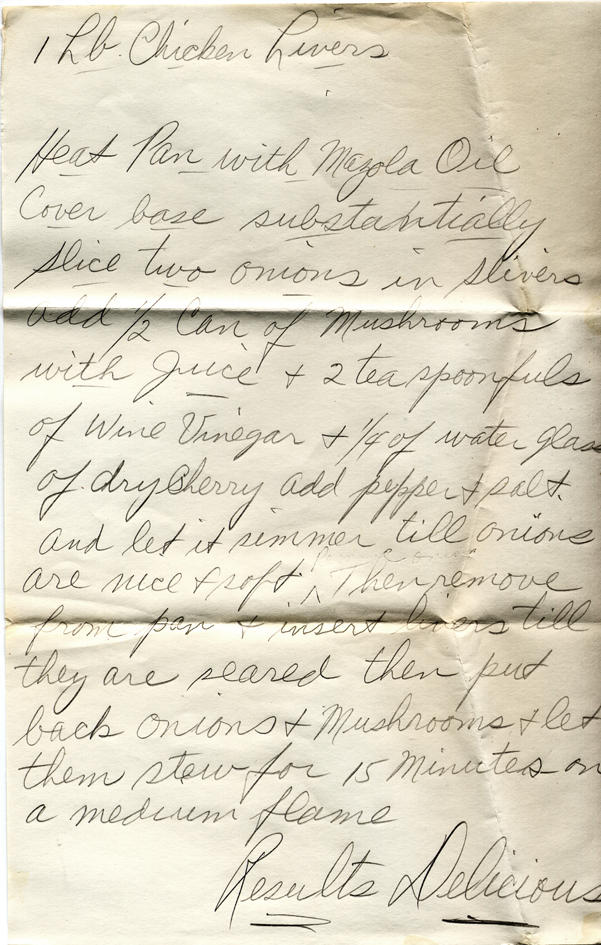 1 Lb. Chicken Livers
Heat Pan with Mazola Oil
Cover base substantially
slice two onions in slivers
add 1/2 Can of Mushrooms
with Juice + 2 teaspoonfuls
of Wine Vinegar + 1/4 of water glass
of dry Sherry add pepper + salt.
and let it simmer till onions
are nice + soft. Then remove
from pan + insert livers till
they are seared then put
back onions + Mushrooms + let
them stew for 15 Minutes on
a medium flame
Results Delicious